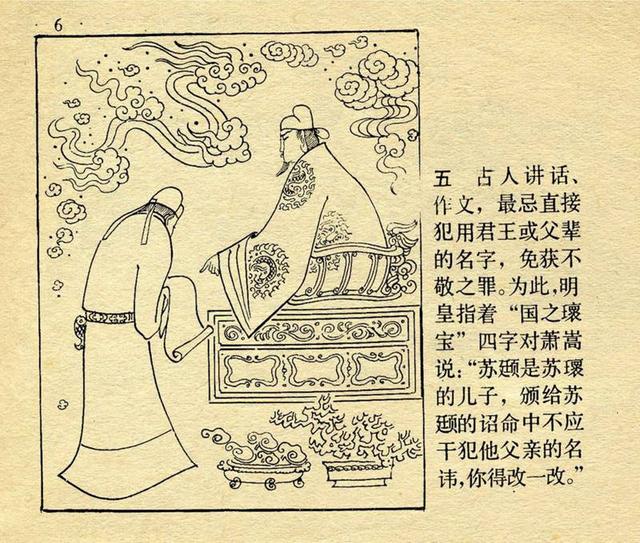 6
五 占人讲话、
作文，最忌直接
犯用君王或父辈
的名字，免获不
敬之罪。为此，明
皇指着“国之瓌
宝”四字对萧嵩
说：“苏颋是苏瓌
的儿子，颁给苏
颋的诏命中不应
干犯他父亲的名
讳，你得改一改。”